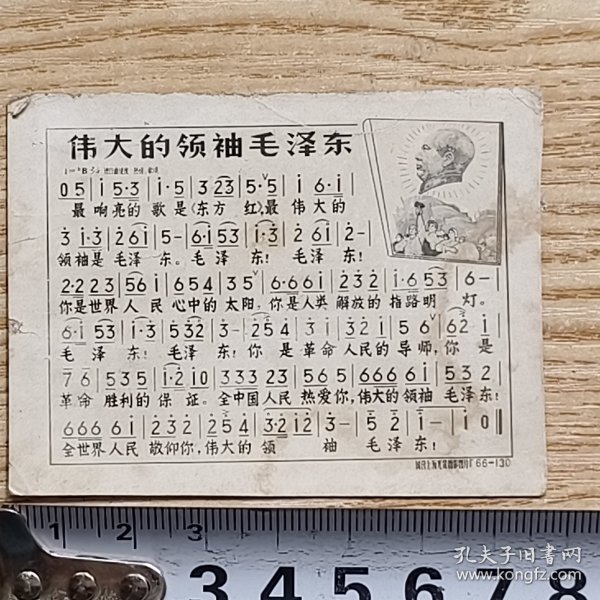 伟大的领袖毛泽东
0 5 | i 5·3 | i·5 | 3 23 | 5·5 | i 6·i |
最 响亮的 歌 是《东方 红》,最 伟大的
3 i·3 | 2 6i | 5- | 6·i 53 | i·3 | 2 6i | 2- |
领袖是 毛泽 东。毛 泽 东! 毛 泽 东!
2·2 23 | 56 i | 654 | 35 | 6·6 6i | 232 | i·6 53 | 6- |
你是世界人 民 心中的 太阳,你是人类 解放的 指路明 灯。
6·i 53 | i·3 | 532 | 3- | 254 | 3 i | 32i | 5 6 | 62 i |
毛 泽 东! 毛泽 东!你 是 革命 人民的 导师,你 是
7 6 | 535 | i·2 i0 | 333 23 | 565 | 666 6i | 532 |
革命 胜利的 保 证。全中国人民 热爱你,伟大的领袖 毛泽东!
666 6i | 232 | 254 | 3·2 i2 | 3- | 5 2 | i- | i0 ||
全世界人民 敬仰你,伟大的 领 袖 毛 泽 东!
66-130
1 2 3 4 5 6 7 8
孔夫子旧书网
www.kongfz.com